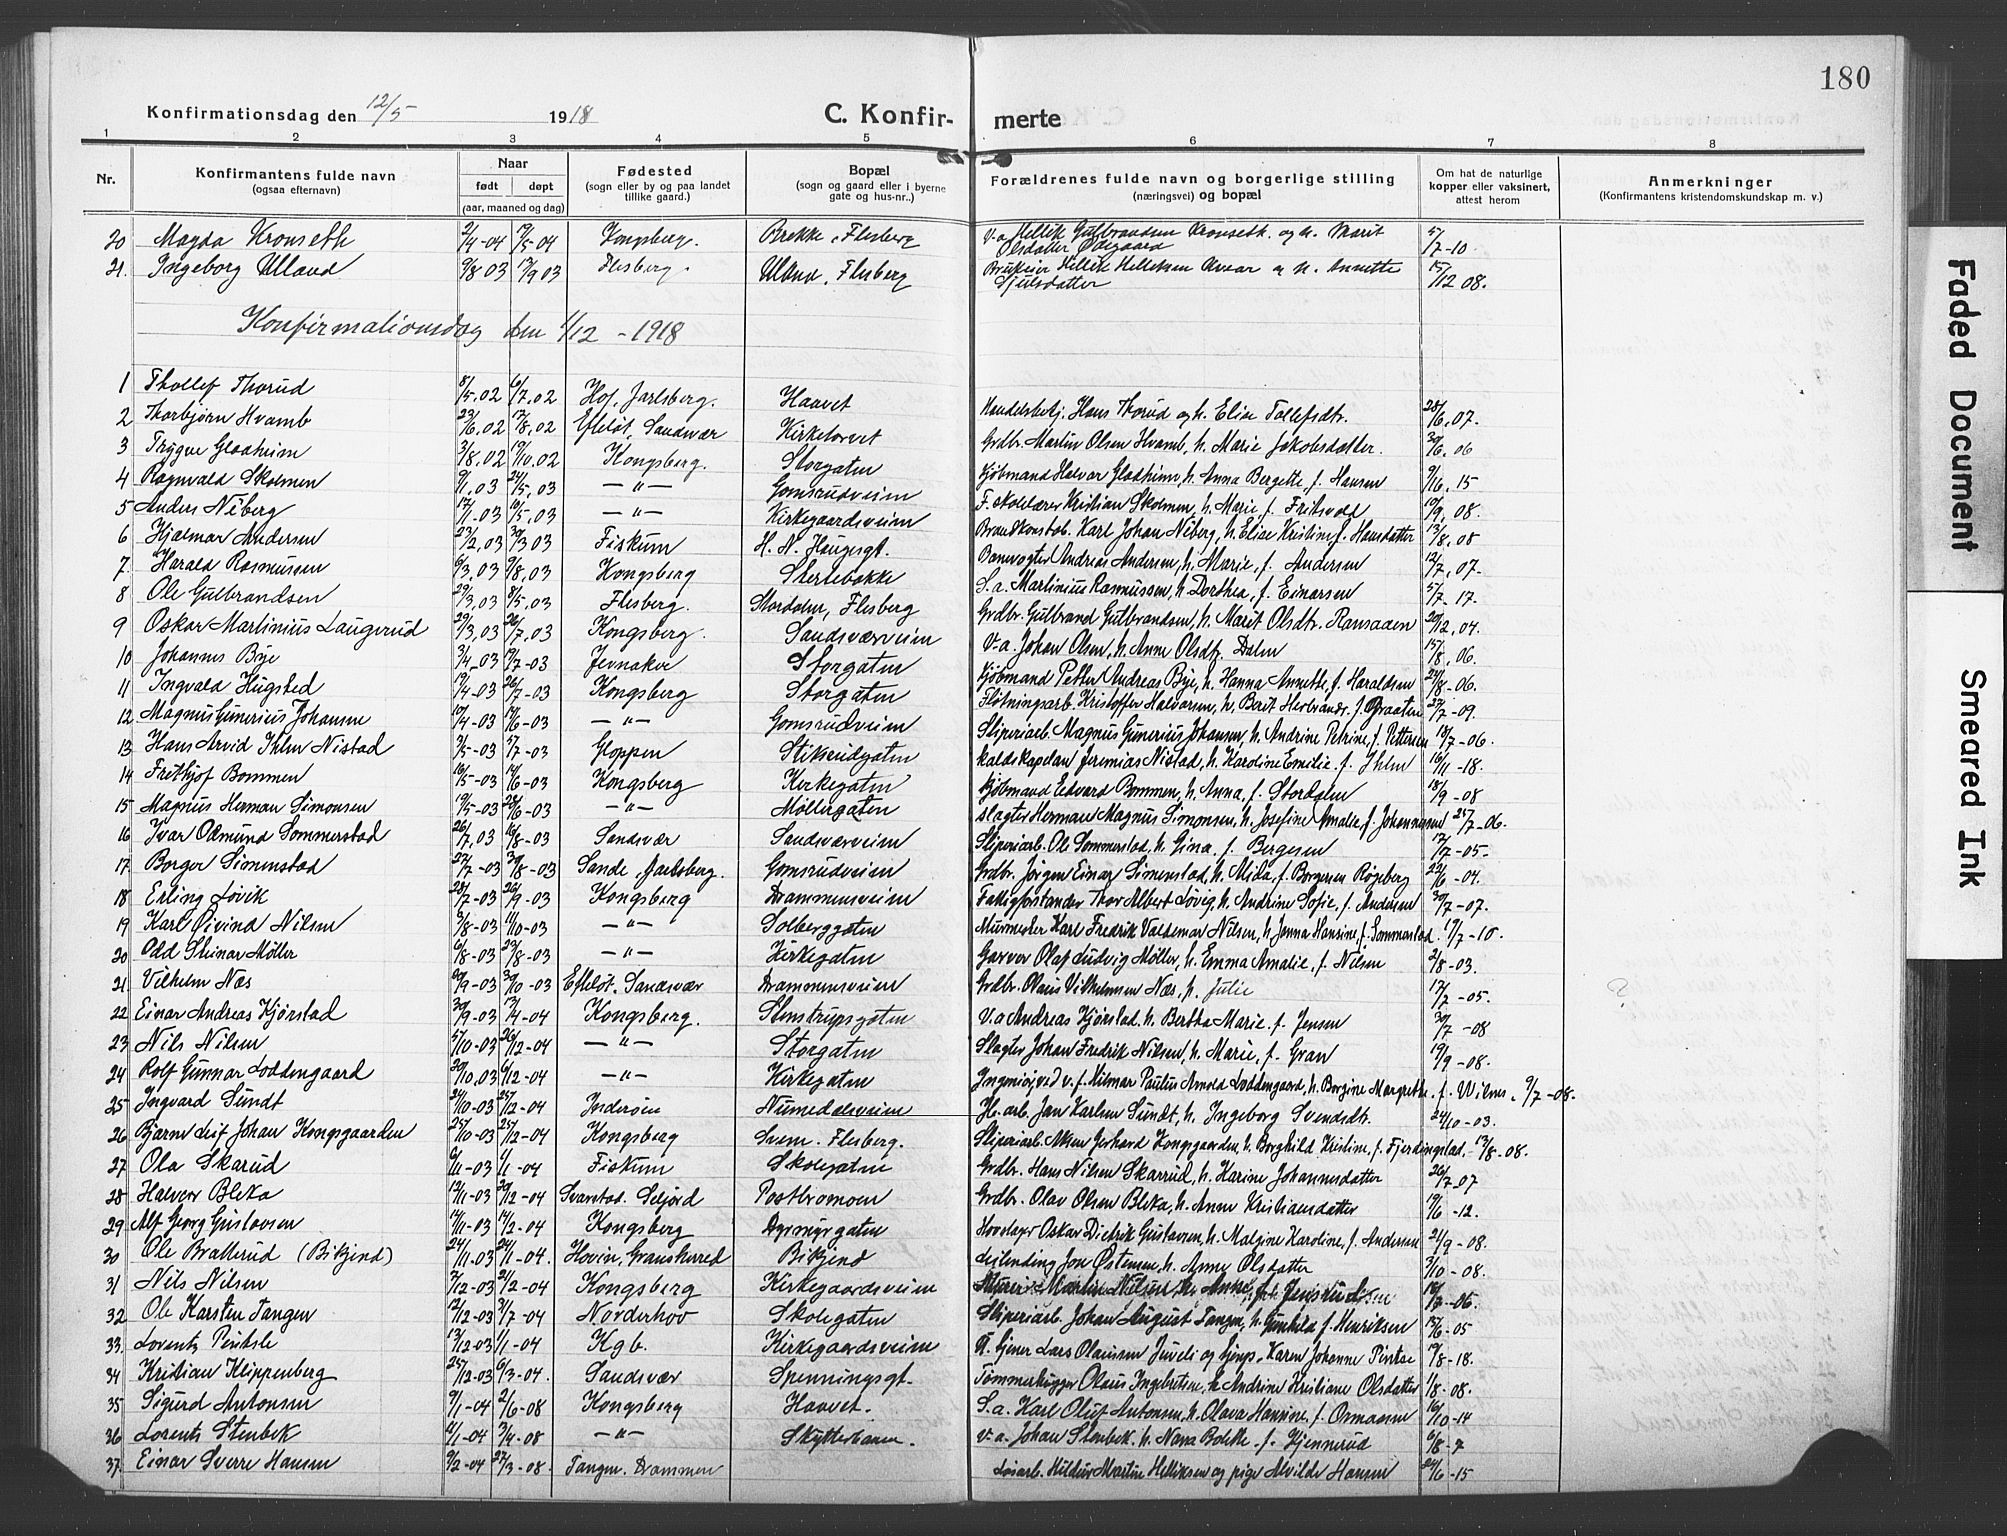 180
Konfirmationsdag den 12/5 1918 C. Konfirmerte
1 2 3 4 5 6 7 8
Nr. Konfirmantens fulde navn (ogsaa efternavn) Naar født døpt (aar, maaned og dag) Fødested (sogn eller by og paa landet tillike gaard.) Bopæl (sogn og gaard eller i byerne gate og hus-nr..) Forældrenes fulde navn og borgerlige stilling (næringsvei) og bopæl Om hat de naturlige kopper eller vaksinert, attest herom Anmerkninger (Konfirmantens kristendomskundskap m. v.)
20 Magda Kronseth 2/4-04 19/5-04 Kongsberg. Brekke, Flesberg V.a Hellik Gulbrandsen Kronseth. og h. Marit Olsdatter Ødegaard 5/7-10
21. Ingeborg Ulland 9/8 03 13/9 03 Flesberg. Ulland, Flesberg Hellik Helleksen og h. Annette Sjulsdatter 15/12 08.
Konfirmationsdag den 1/12 - 1918
1 Thollef Thorud 8/5.02 6/7.02 Hof, Jarlsberg. Haavet Handelsbetj. Hans Thorud og h. Elise Tollefsdtr. 28/6.07.
2 Thorbjørn Hvamb 23/6.02 17/8.02 Efteløt, Sandsvær Kirketorvet Grdbr. Martin Olsen Hvamb, h. Marie Jakobsdatter. 30/6.06
3 Trygve Gladheim 3/8.02 19/10.02 Kongsberg. Storgaten Kjøbmand Halvar Gladheim, h. Anna Bergette, f. Hansen 9/16.15
4 Ragnvald Skolmen 9/1.03 24/5.03 —"— Gomsrudveien F. skolelærer Kristian Skolmen, h. Marie, f. Fritsvold 19/9.08.
5 Anders Niberg 17/1.03 10/5.03 —"— Kirkegaardsveien Brandkonstab. Karl Johan Niberg, h. Elise Kristine, f. Hansdatter 13/8.08
6 Hjalmar Andersen 23/2.03 30/3 03 Fiskum H. N. Haugesgt. Banevogter Andreas Andersen, h. Marie, f. Andersen 12/7.07.
7. Harald Rasmussen 6/3.03 9/8.03 Kongsberg Stertebakke S.a. Martinius Rasmussen, h. Dorthea, f. Einarsen 5/7-17.
8 Ole Gulbrandsen 29/3.03 8/5.03 Flesberg. Stordalen, Flesberg Grdbr. Gulbrand Gulbrandsen, h. Marit Olsdtr. Ransaaen 20/12.04.
9 Oskar Martinius Laugerud 29/3.03 26/7.03 Kongsberg. Sandsværveien V.a. Johan Olsen, h. Anne Olsdtr. Dalen 15/8.06.
10 Johannes Bye 3/4-03 19/7-03 Jevnaker Storgaten Kjøbmand Petter Andreas Bye, h. Hanna Annette, f. Haraldsen 24/8-06.
11 Ingvald Hugsted 19/4-03 26/7-03 Kongsberg Storgaten Fløtningsarb. Kristoffer Halvorsen, h. Berit Herbrandr. f. Braaten 27/7-09.
12 Magnus Gunerius Johansen 10/4-03 14/6-03 —"— Gomsrudveien Sliperiarb. Magnus Gunerius Johansen, h. Andrine Petrine, f. Pettersen 18/7-06.
13 Hans Arvid Ihlen Nistad 3/5-03 5/7-03 Gloppen Stiksrudgaten kaldskapelan Jeremias Nistad, h. Karoline Emilie. f. Ihlen 16/11-18.
14 Frithjof Bommen 16/5-03 14/6-03 Kongsberg Kirkegaten Kjøbmand Edvard Bommen, h. Anna, f. Stordalen 18/9-08
15 Magnus Herman Simonsen 19/5-03 28/6-03 —"— Møllergaten slagter Herman Magnus Simonsen, h. Josefine Amalie, f. Johannesen 25/7-06.
16 Ivar Odmund Sommerstad 26/7.03 16/8-03 Sandsvær Sandsværveien Sliperiarb. Ole Sommerstad, h. Gina. f. Bergesen 17/7-05-
17. Borger Simenstad 27/7-03 30/8-03 Sande, Jarlsberg. Gomsrudveien Grdbr. Jørgen Einar Simenstad, h. Mida, f. Borgersen Røgeberg 22/6-04.
18 Erling Løvik 28/7-03 26/9-03 Kongsberg Drammensveien Fattigforstander Thor Albert Løvig, h. Andrine Sofie, f. Andersen 30/7-07.
19 Karl Øivind Nilsen 3/8-03 11/10-03 —"— Solberggaten Murmester Karl Fredrik Valdemar Nilsen, h. Jenna Hansine, f. Sommerstad. 17/7-10.
20 Odd Steinar Møller 6/8-03 23/8-03 —"— Kirkegaten Garver Olaf Ludvig Møller, h. Emma Amalie, f. Nilsen 21/8-03.
21. Vilhelm Næs 20/9-03 30/10-03 Efteløt. Sandsvær Drammensveien Grdbr. Olaus Vilhelmsen Næs, h. Julie 17/7-05. ?
22 Einar Andreas Kjørstad 30/9-03 13/4-04 Kongsberg. Stenstrupsgaten V.a Andreas Kjørstad, h. Bertha Marie. f. Jensen 30/7-08
23 Nils Nilsen 5/10-03 26/12-04 —"— Storgaten Slagter Johan Fredrik Nilsen, h. Marie, f. Gran 19/9-08.
24 Rolf Gunnar Loddengaard 20/10.03 6/12-04 —"— Kirkegaten Ingeniør ved v.f. Hilmar Paulus Arnold Loddengaard, h. Borgine Margrethe. f. Wilms. 9/7-08.
25 Ingvard Sundt 24/10-03 25/12-04 Inderøen Numedalsveien Jb. arb. Jan Karlsen Sundt, h. Ingeborg Svendsdtr. 24/10-03.
26 Bjarne Leif Johan Kongsgaarden 25/10-03 25/12-04 Kongsberg Svene. Flesberg. Sliperiarb. Aksen Gerhard Kongsgaarden, h. Borghild Kristine, f. Fjerdingstad. 17/8-08.
27 Ola Skarud 6/11-03 1/1-04 Fiskum Skolegaten Grdbr. Hans Nilsen Skarrud, h. Karine Johannesdatter 26/7-07
28 Halvor Bleka 12/11-03 20/12-04 Svartdal. Seljord Postbromoen Grdbr. Olav Olsen Bleka, h. Anne Kristiansdatter 19/6-12.
29 Alf Georg Gustavsen 14/11-03 14/2-04 Kongsberg Dyrmyrgaten Hovslager Oskar Diedrik Gustavsen, h. Malgine Karoline, f. Andersen 21/9-08.
30 Ole Bratterud (Bikjend) 24/11-03 24/1-04. Hovin, Gransherred Bikjend Leilending Jon Østensen, h. Anne Olsdatter 3/10-08.
31 Nils Nilsen 7/12-03 21/2-04 Kongsberg Kirkegaardsveien Murer Martin Nilsen, h. Anna 18/7-06.
32 Ole Karsten Tangen 12/12-03 3/7-04 Norderhov Skolegaten Sliperiarb. Johan August Tangen, h. Gunhild f. Henriksen 15/6-05
33. Lorentz Pintsle 13/12 03 1/1-04 Kgb. Kirkegaardsveien Lars Olaussen Juveli og Karen Johanne Pintse 19/8-18.
34 Kristian Klippenberg 25/12-03 6/3-04. Sandsvær Spenningsgt. Tømmerhugger Olaus Ingebretsen, h. Andrine Kristiane Olsdatter 1/8-08.
35 Sigurd Antonsen 9/1-04 2/6-08 Kongsberg Haavet. S.a. Karl Oluf Antonsen, h. Olava Hansine, f. Ormaasen 16/10-14
36 Lorentz Stenbek 11/1-04 3/4-08 —"— Skytterbanen. V.a. Johan Stenbek. h. Nana Bolette. f. Kjennerud 6/8-7
37. Einar Sverre Hansen 9/2-04 27/3-08. Tangen. Drammen Løsarb. Hildus Martin Helliksen og pige Alvilde Hansen 24/6-15
Faded Document
Smeared Ink